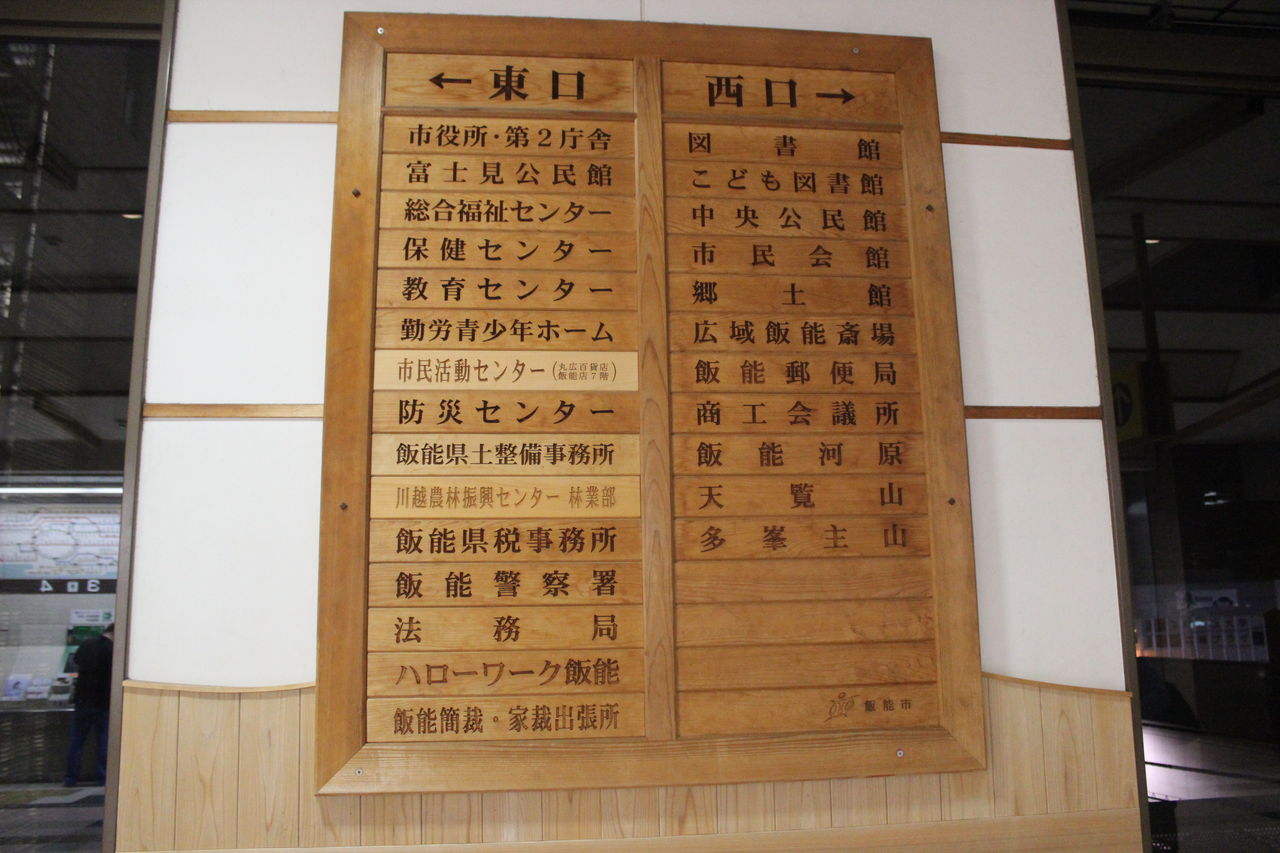 ←東口
市役所・第2庁舎
富士見公民館
総合福祉センター
保健センター
教育センター
勤労青少年ホーム
市民活動センター(丸広百貨店飯能店7階)
防災センター
飯能県土整備事務所
川越農林振興センター 林業部
飯能県税事務所
飯能警察署
法務局
ハローワーク飯能
飯能簡裁。家裁出張所
西口→
図書館
こども図書館
中央公民館
市民会館
郷土館
広域飯能斎場
飯能郵便局
商工会議所
飯能河原
天覧山
多峯主山
飯能市
3 4